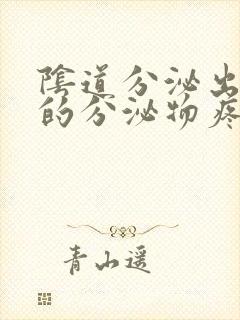 陰道分泌出
的分泌物疼
青山遥